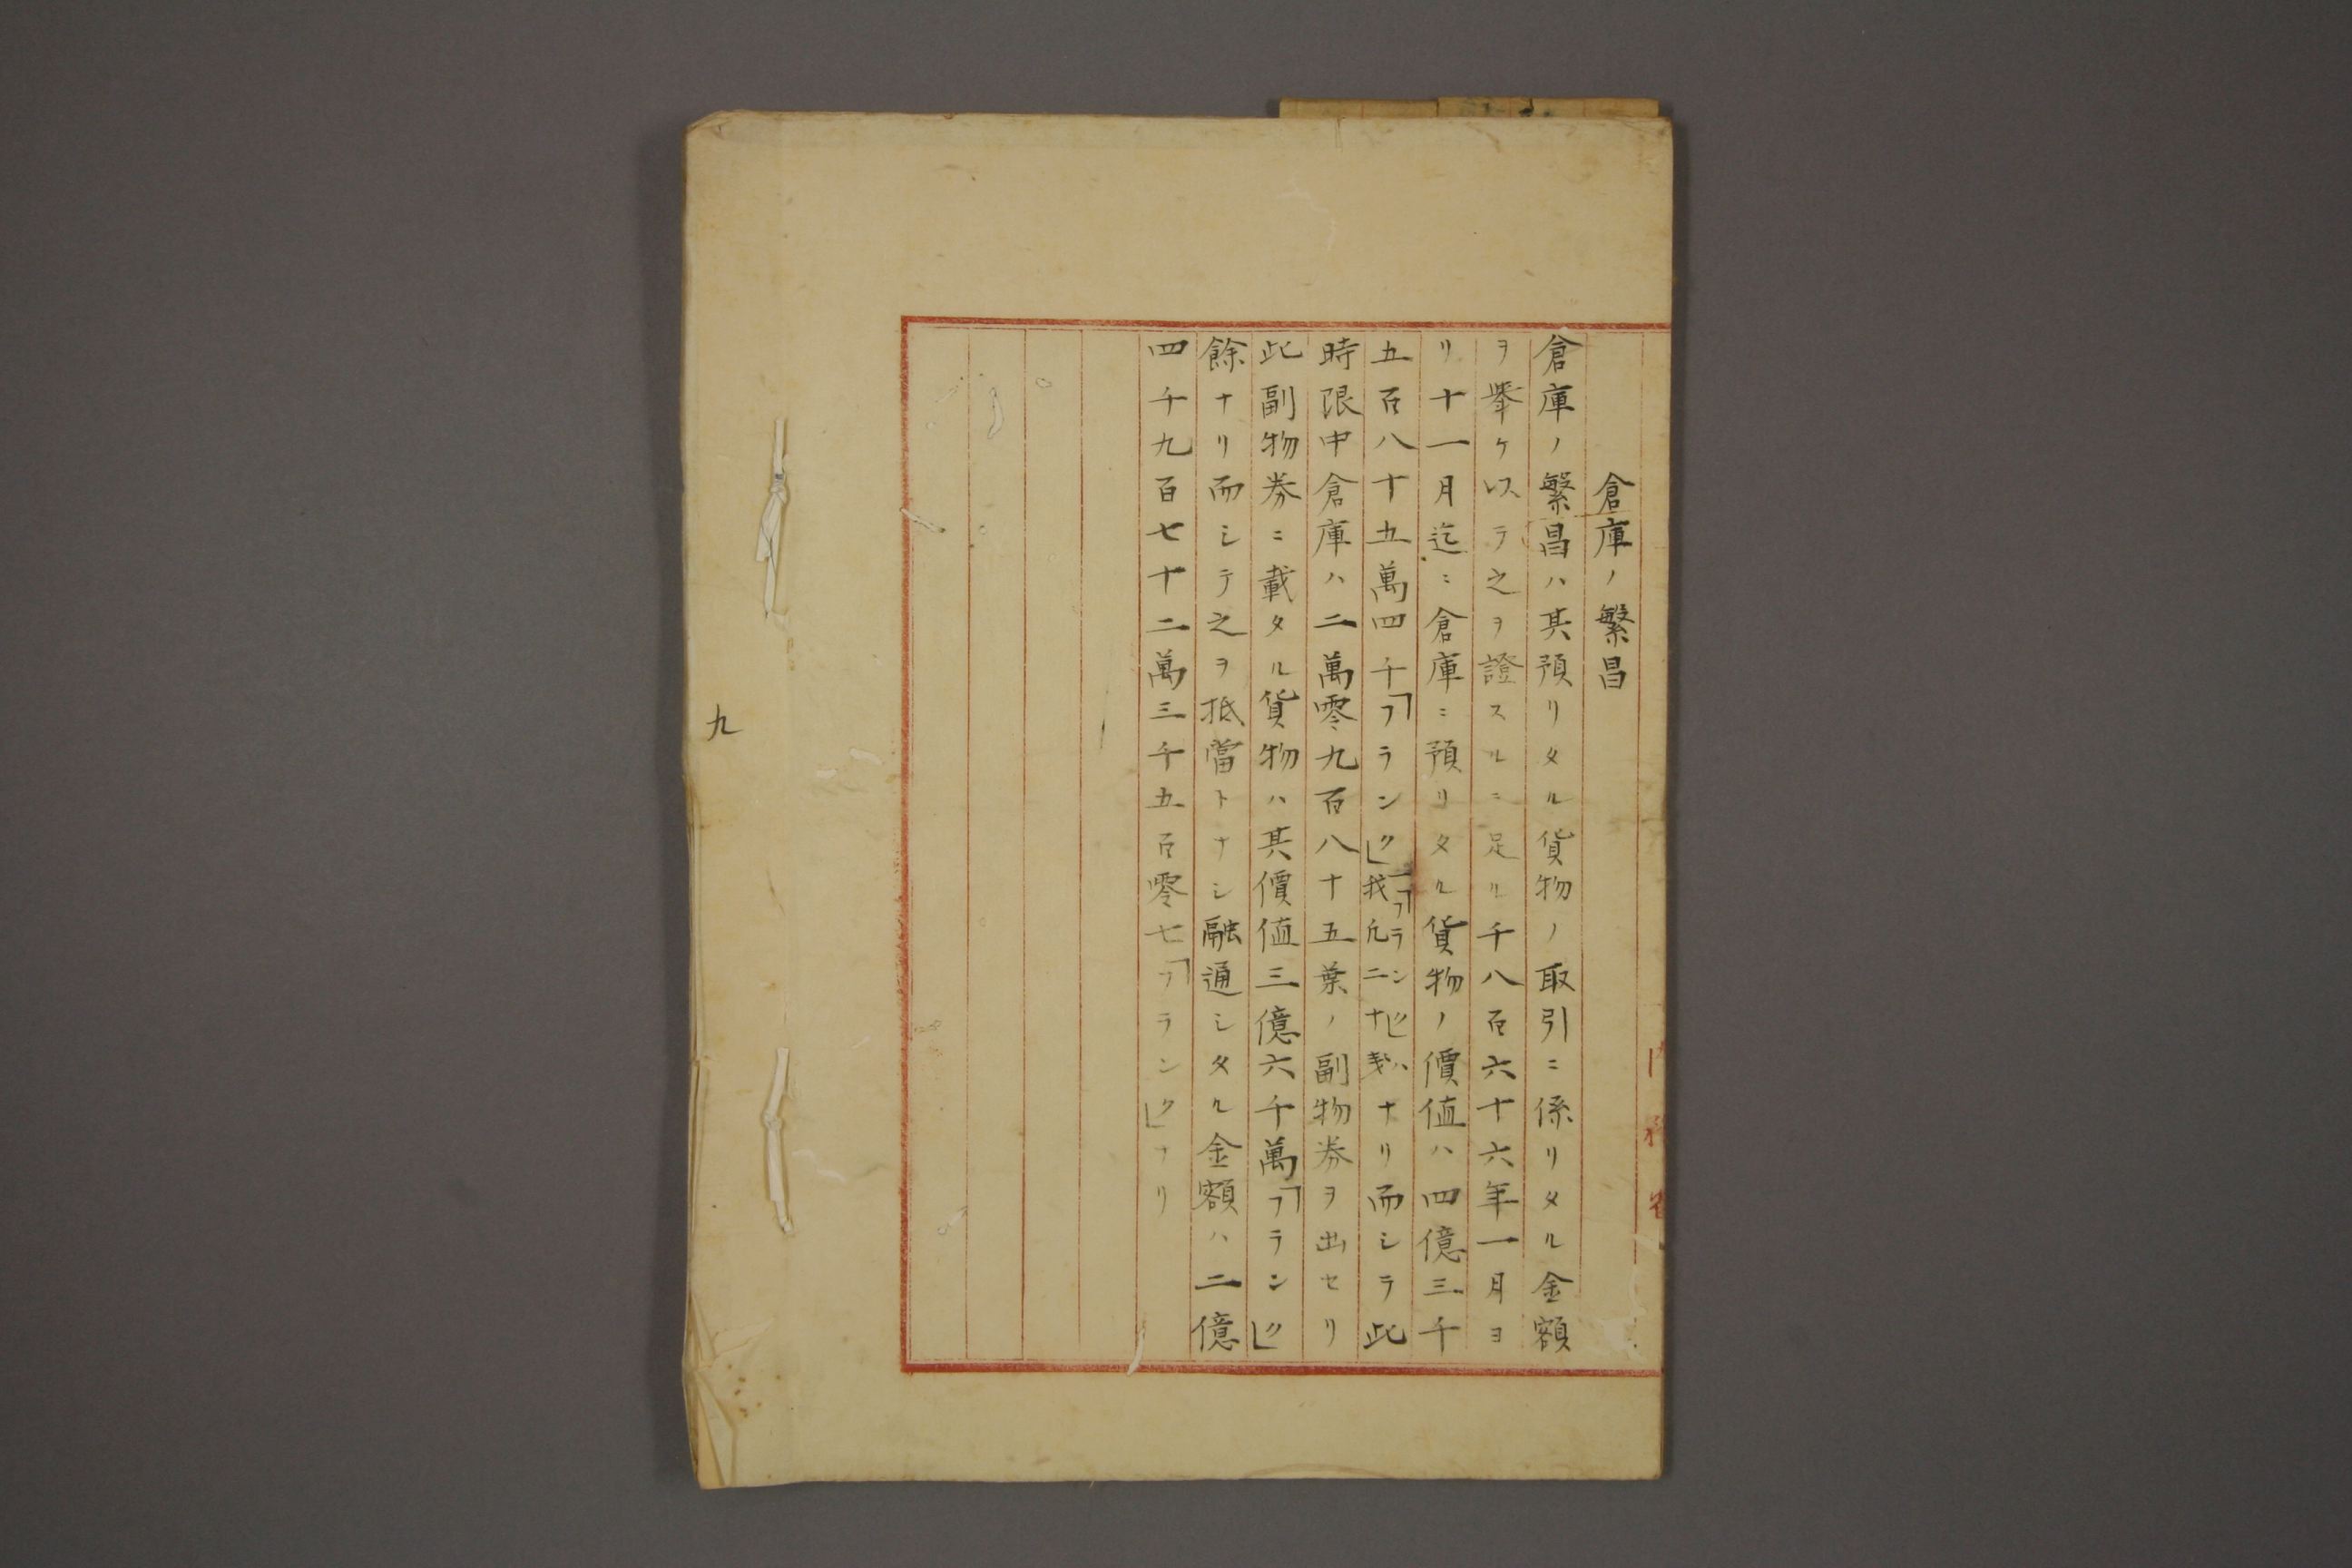 倉庫ノ繁昌
倉庫ノ繁昌ハ其預リタル貨物ノ取引ニ係リタル金額
ヲ擧ケ以テ之ヲ證スルニ足ル千八百六十六年一月ヨ
リ十一月迄ニ倉庫ニ預リタル貨物ノ價値ハ四億三千
五百八十五萬四千「フランク」一「フランク」ハ我凡二十錢ナリ而シテ此
時限中倉庫ハ二萬零九百八十五葉ノ副物券ヲ出セリ
此副物券ニ載タル貨物ハ其價値三億六千萬「フランク」
餘ナリ而シテ之ヲ抵當トナシ融通シタル金額ハ二億
四千九百七十二萬三千五百零七「フランク」ナリ
九